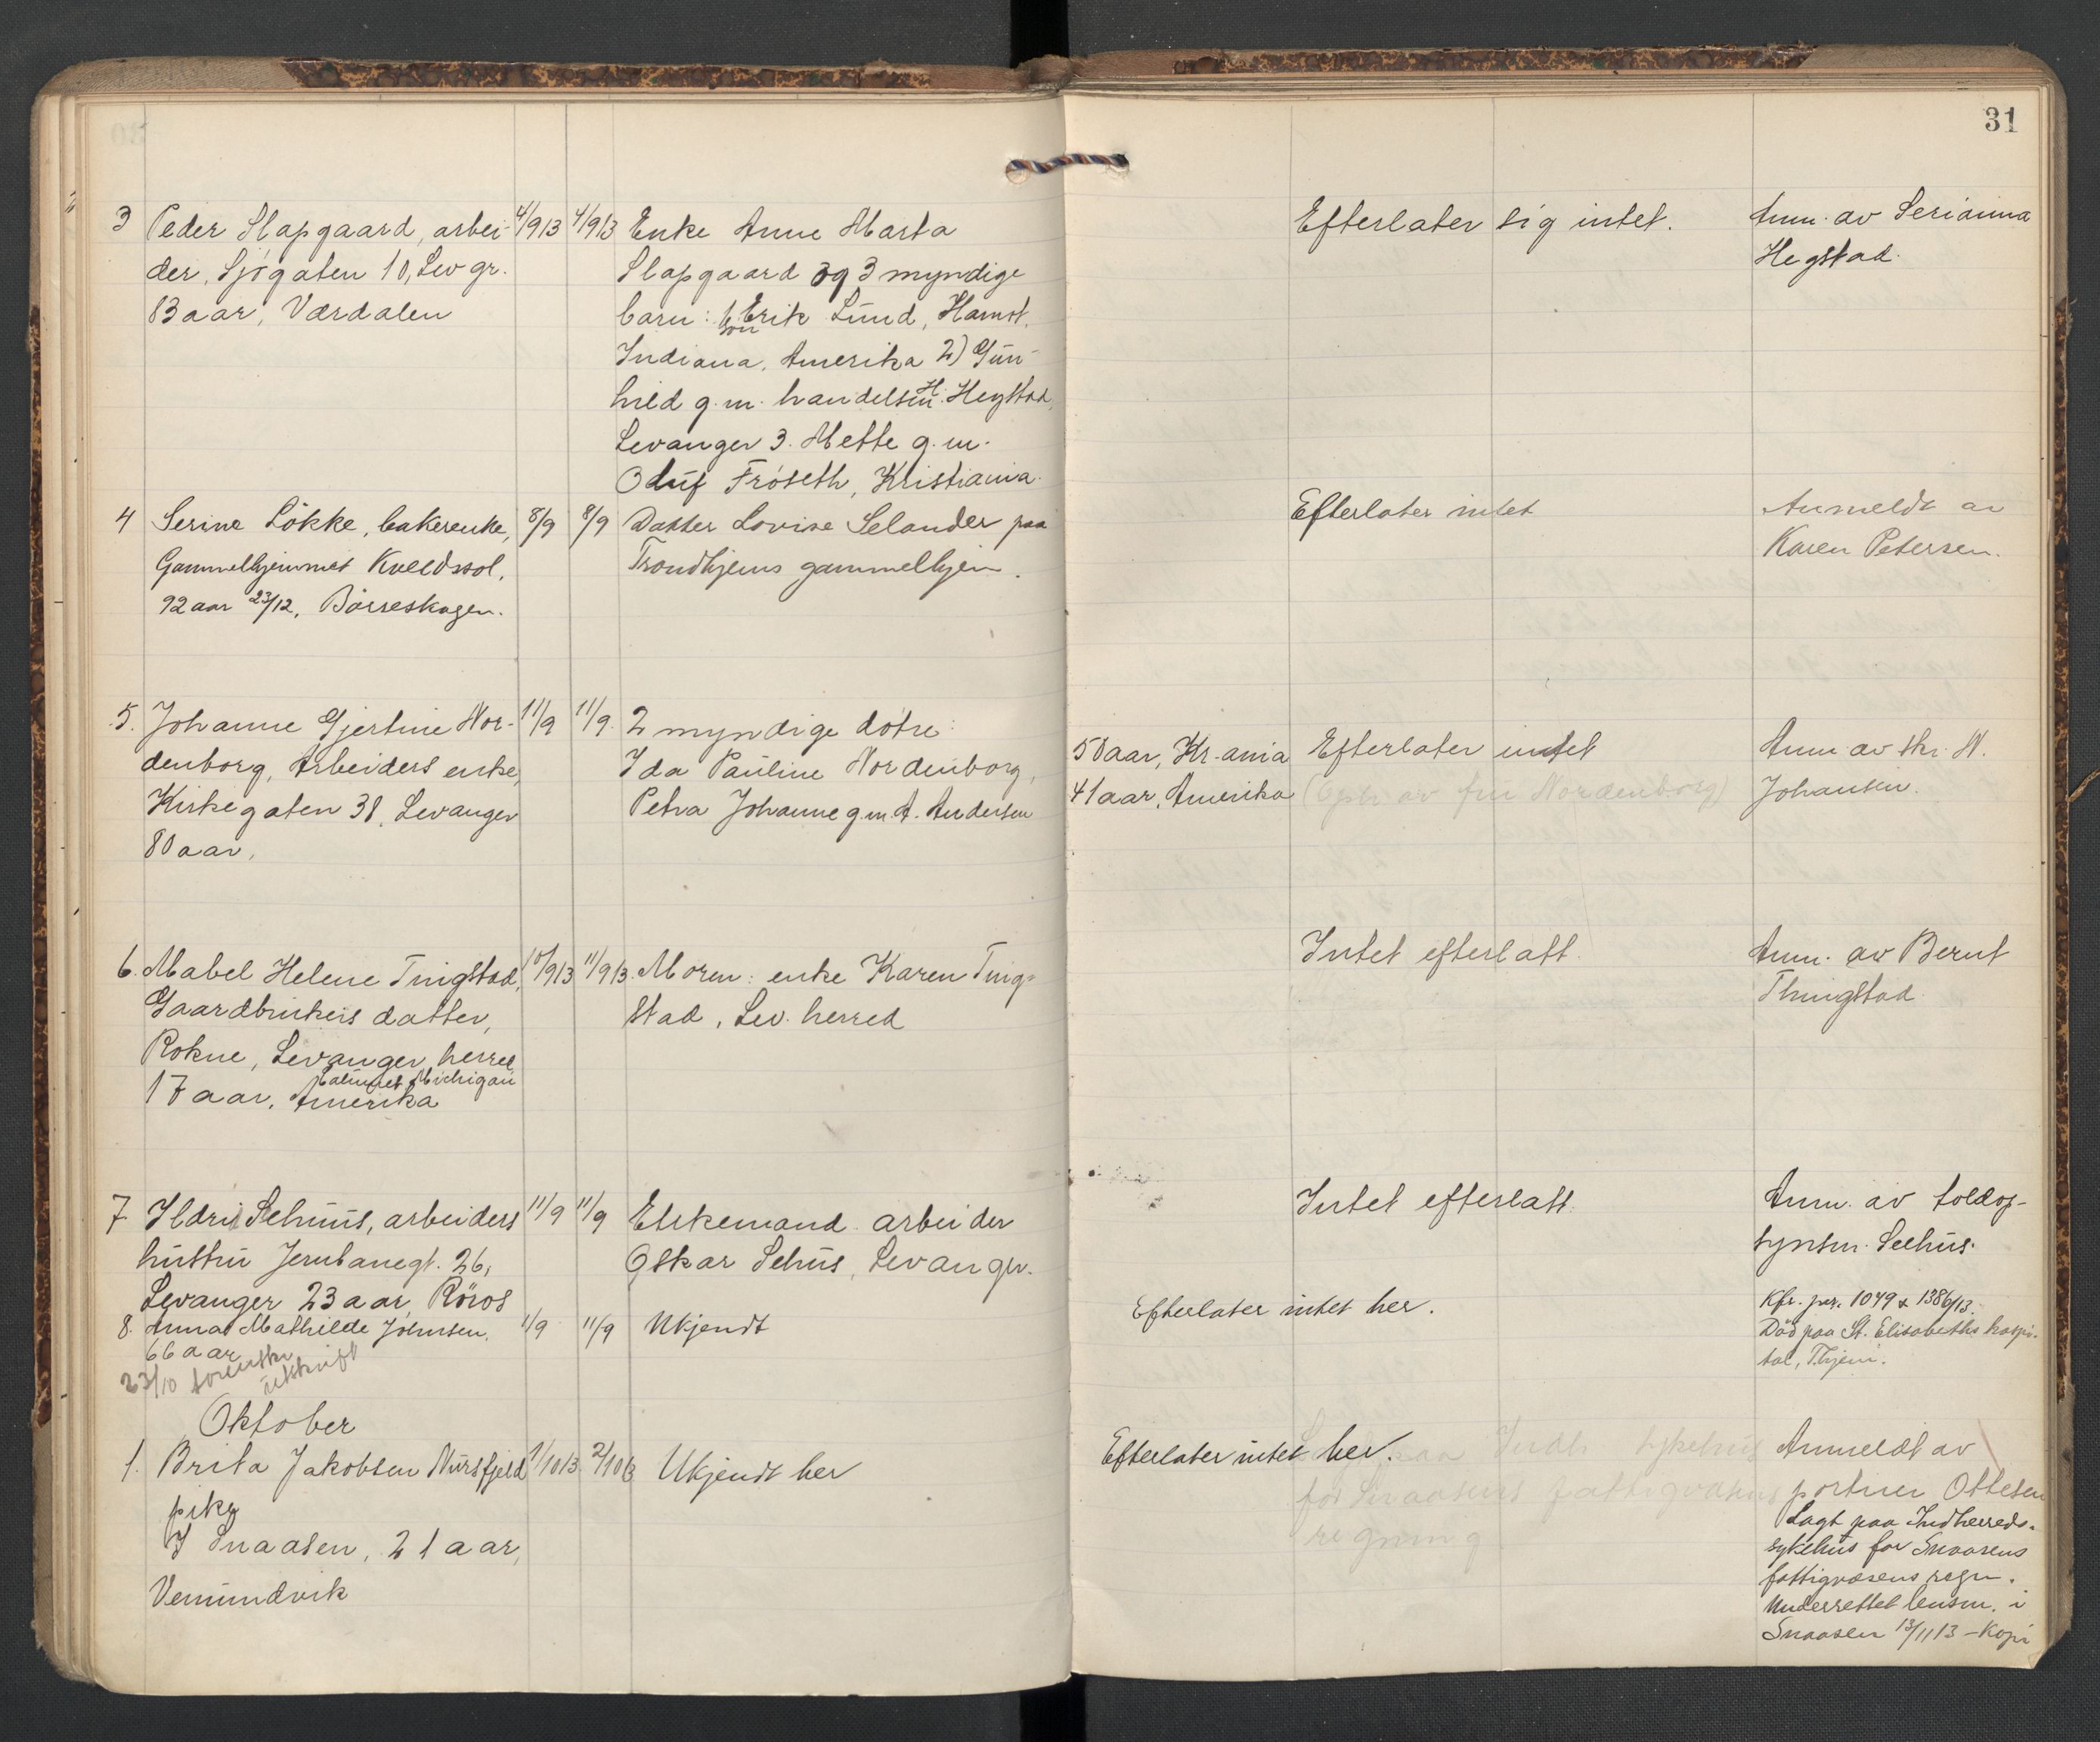 31
3 Peder Slapgaard, arbei- 4/9 13 4/9 13 Enke Anne Marta Efterlater sig intet. Anm. av Serianna
der, Sjøgaten 10, Lev gr. Slapgaard og 3 myndige Hegstad.
83 aar, Værdalen barn: 1, Erik Lund, Hamst.
søn
Indiana, Amerika 2) Gun-
hild g. m. handelsm. H. Hegstad,
Levanger 3. Mette g. m.
Oluf Fröseth, Kristiania.
4 Serine Lökke, bakerenke, 8/9 8/9 Datter Lovise Selander paa Efterlater intet Anmeldt av
Gammelhjemmet Kveldssol, Trondhjems gammelhjem. Karen Petersen.
92 aar 23/12, Börseskogen.
5. Johanne Gjertine Nor- 11/9 11/9. 2 myndige døtre:
denborg, Arbeiders enke, Ida Pauline Nordenborg, 50 aar, Kr-ania Efterlater intet Anm av skr. N.
Kirkegaten 38, Levanger Petra Johanne g.m. A. Andersen 41 aar, Amerika ( av fru Nordenborg) Johansen.
80 aar,
6. Mabel Helene Tingstad, 10/9 13 11/9 13. Moren: enke Karen Ting- Intet efterlatt. Anm. av Bernt
Gaardbrukers datter, stad, Lev. herred Thingstad.
Rokne, Levanger herred
Calumet Michigan
17 aar, Amerika
7 Ildri Sehuus, arbeiders 11/9 11/9 Ektemand arbeider Intet efterlatt. Anm. av toldop-
hustru Jernbanegt. 26, Oskar Sehus, Levanger. synsm. Seehus.
Levanger 23 aar, Röros
8. Anna Mathilde Johnsen, 11/9 11/9 Ukjendt Efterlater intet her. Kfr. pr. 1049 & 1386/13.
66 aar Död paa St. Elisabeths hospi-
tal, Thjem.
23/10 utskrift
Oktober
1. Brita Jakobsen Nursfjeld 1/10 13. 2/10 13 Ukjendt her Efterlater intet her. paa Indh. sykehus Anmeldt av
pike for Snaasens fattigvæsens portner Ottesen
I Snaasen, 21 aar, regning Lagt paa Indherreds-
Vemundvik sykehus for Snaasens
fattigvæsens regn.
Underrettet lensm. i
Snaasen 13/11 13 – Kopi